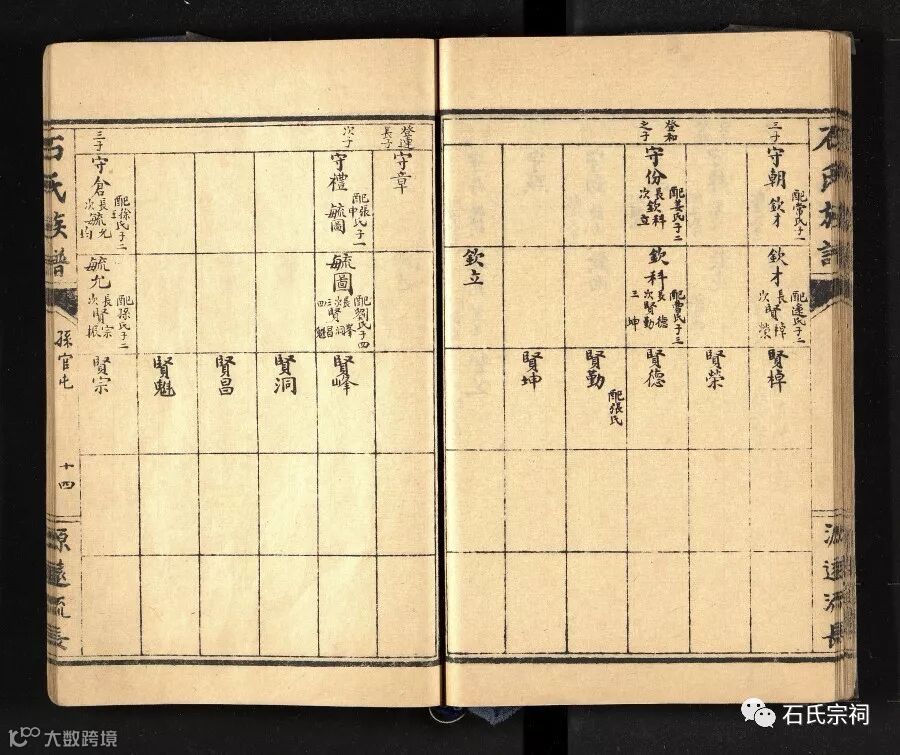 石氏族譜
源遠流長
三子
守朝
配常氏子一
欽才
欽才
長賢棹
次榮
賢棹
賢榮
登和
之子
守份
配姜氏子二
長欽科
次立
欽科
配曹氏子三
長德
次賢勤
三坤
賢德
賢勤
配張氏
賢坤
欽立
登蓮
長子
守章
次子
守禮
配張氏子一
毓圖
毓圖
配劉氏子四
長峯
次洞
三賢昌
四魁
賢峰
賢洞
賢昌
賢魁
三子
守倉
配徐氏子二
長毓允
次均
毓允
配孫氏子二
長賢宗
次根
賢宗
石氏族譜
孫官屯
十四
源遠流長
石氏宗祠
大数跨境